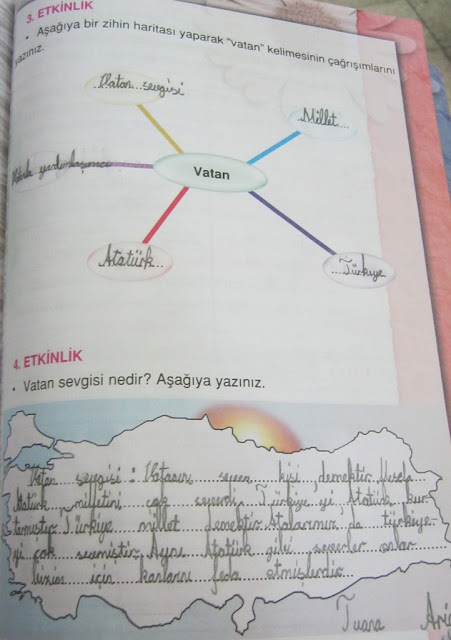 3. ETKİNLİK
• Aşağıya bir zihin haritası yaparak "vatan" kelimesinin çağrışımlarını
yazınız.
Vatan sevgisi
Millet
Vatan
yardımlaşması
Atatürk
Türkiye
4. ETKİNLİK
• Vatan sevgisi nedir? Aşağıya yazınız.
Vatan sevgisi: Vatanını seven kişi demektir. Mesela
Atatürk milletini çok severdi. Türkiye'yi Atatürk kur-
tarmıştır. Türkiye millet demektir. Atalarımız da türkiye-
yi çok sevmiştir. Aynı Atatürk gibi severler onlar
bizim için kanlarını feda etmişlerdir.
Tuana